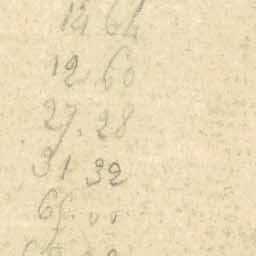 14 64
12,60
27.28
31 32
65.00